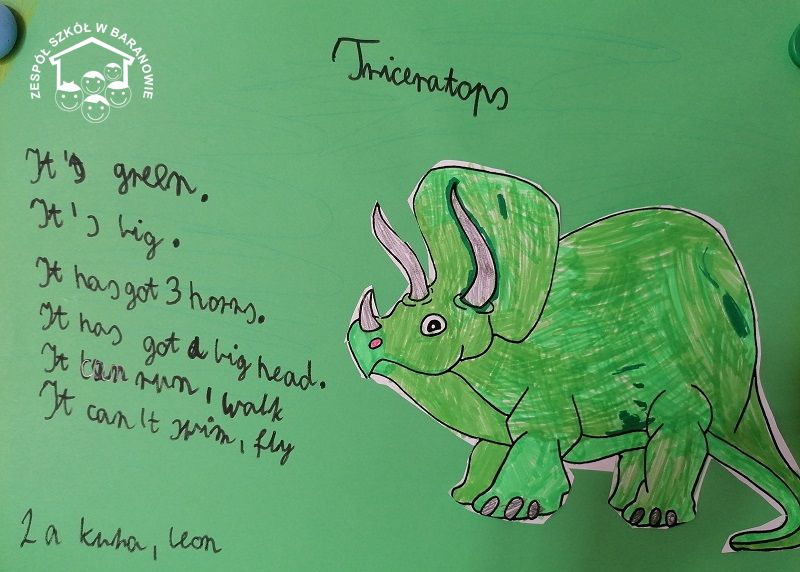 ZESPÓŁ SZKÓŁ W BARANOWIE
Triceratops
It's green.
It's big.
It has got 3 horns.
It has got a big head.
It can run, walk
It can't swim, fly
2a kuba, leon